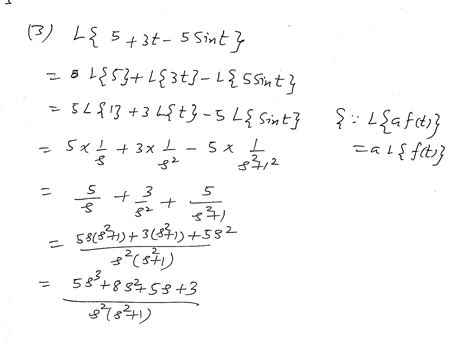 (3) L{ 5 + 3t - 5 Sint }
= L{5} + L{3t} - L{5Sint}
= 5L{1} + 3L{t} - 5L{Sint} { ∵ L{a f(t)}
= 5 × 1/s + 3 × 1/s² - 5 × 1/s²+1² = a L{f(t)}
= 5/s + 3/s² + 5/s²+1
= 5s(s²+1) + 3(s²+1) + 5s² / s²(s²+1)
= 5s³ + 8s² + 5s + 3 / s²(s²+1)